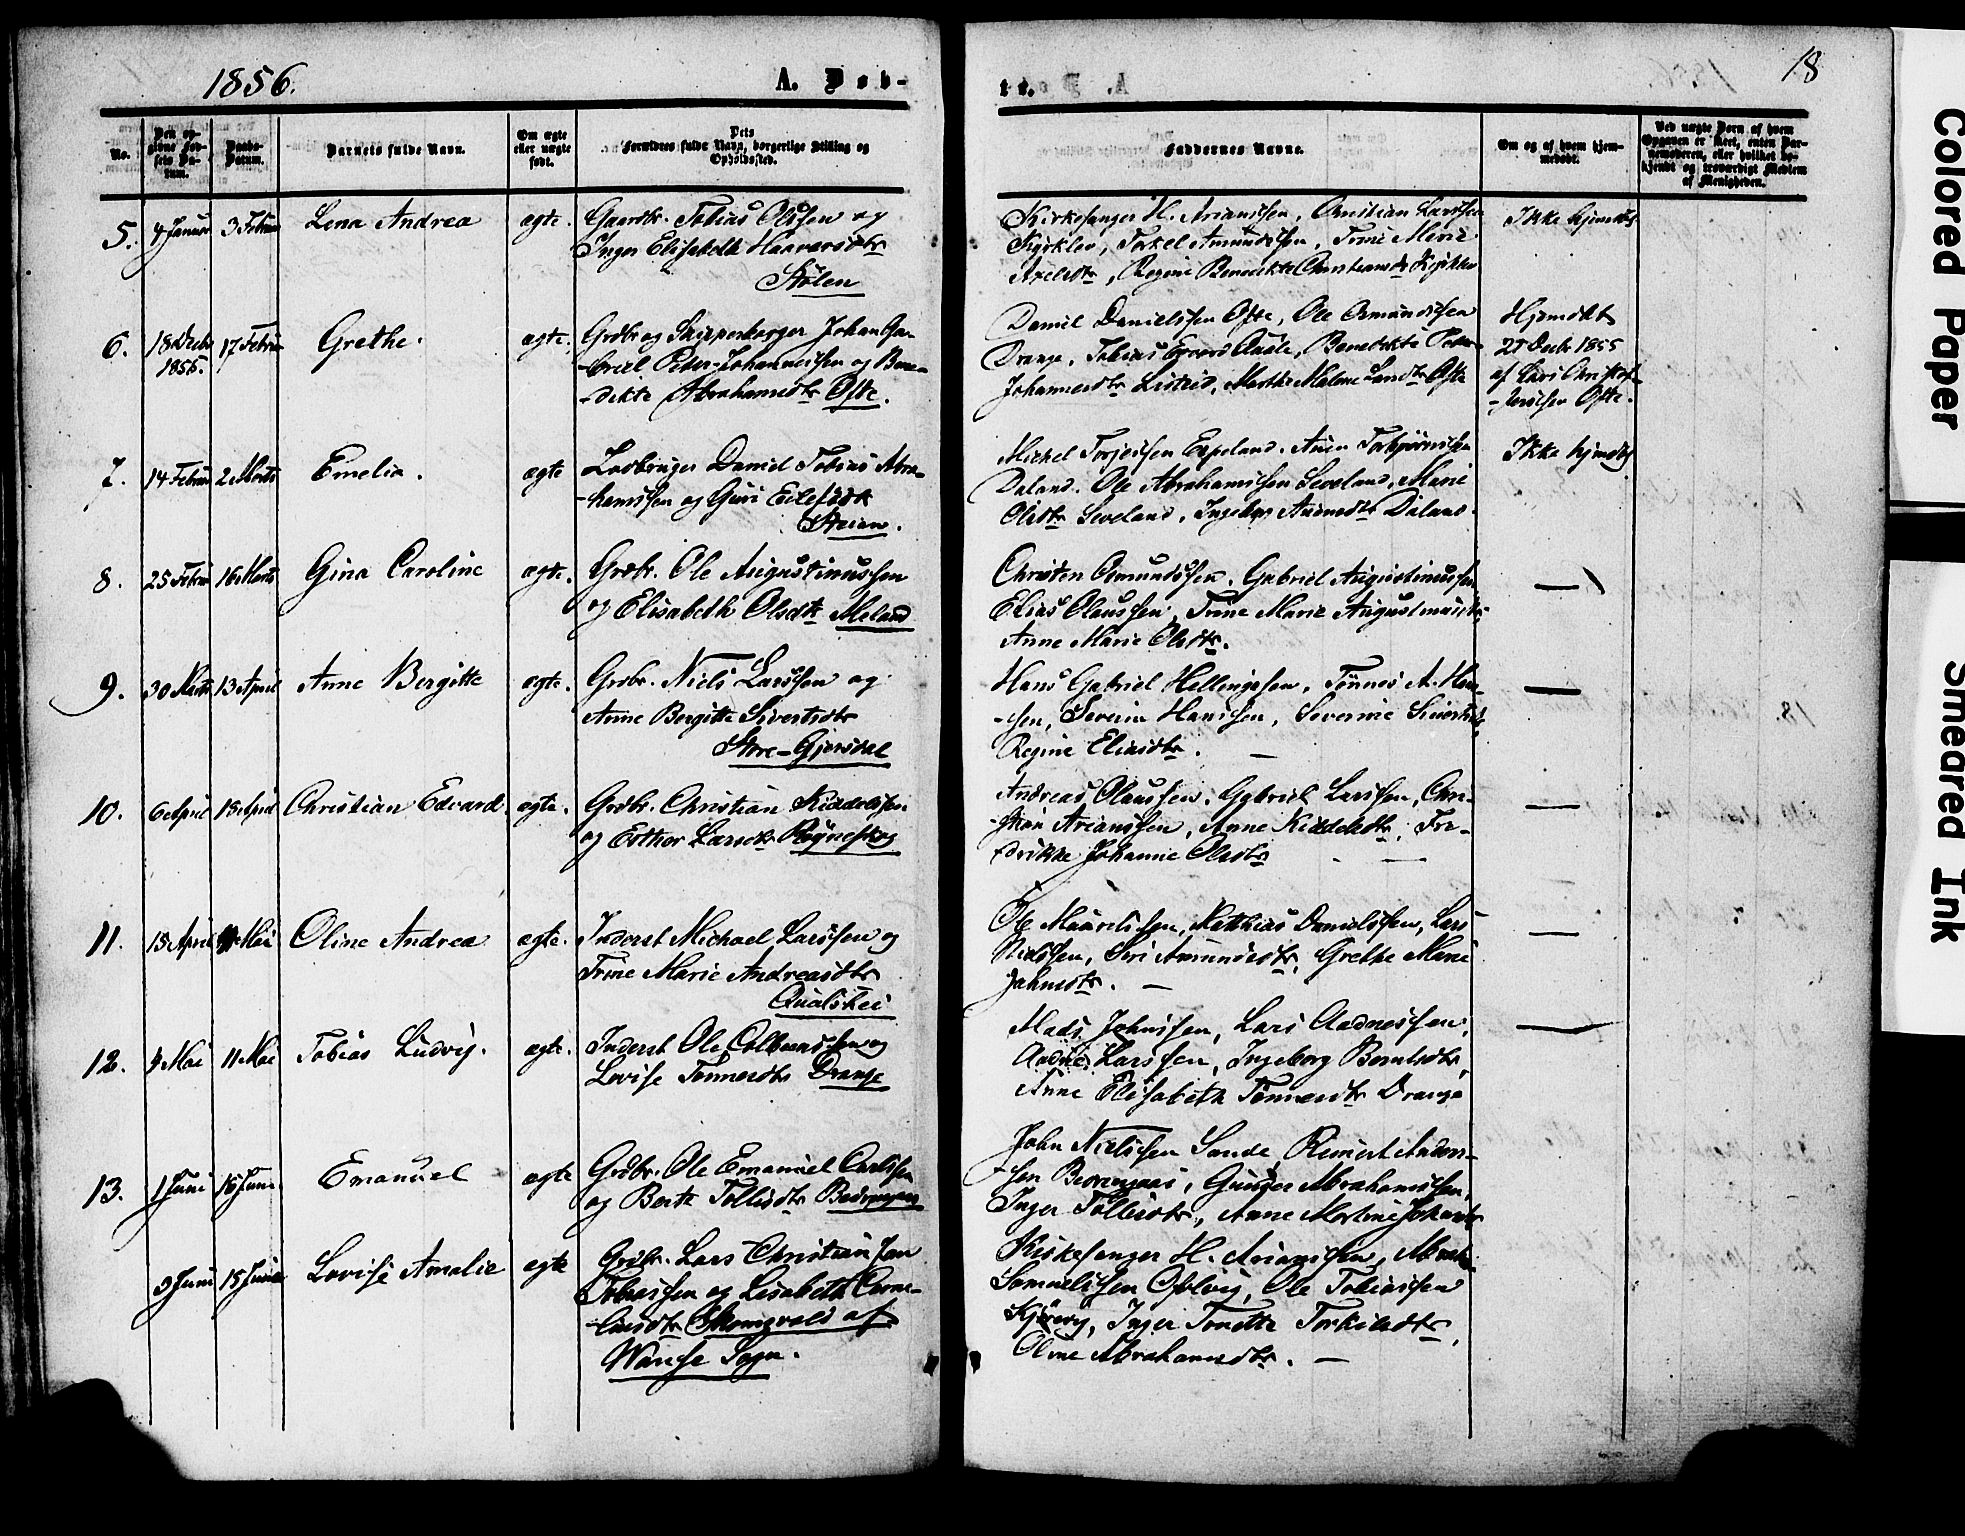 1856.
A. Døb-
te.
18
No.
Den op-
givne Fød-
sels Da-
tum.
Daabs-
Datum.
Barnets fulde Navn.
Om ægte
eller uægte
født.
Dets
Forældres fulde Navn, borgerlige Stilling og
Opholdssted.
Faddernes Navne.
Om og af hvem hjem-
medøbt.
Ved uægte Børn af hvem
Opgaven er skeet, enten Bar-
nemoderen, eller hvilket be-
kjendt og troværdigt Medlem
af Menigheden.
5.
4 Januar
3 Februar
Lena Andrea
ægte.
Gaardbr. Tobias Olssen og
Inger Elisabeth Haaversdtr
Stølen
Kirkesanger H. Arianssen, Christian Larssen
Torkel Amundssen, Trine Marie
Axelsdtr, Regine Benedikte Christiansdtr
Ikke hjemdøbt
6.
18 Decbr
1855.
17 Februar
Grethe.
ægte.
Grdbr og Skipperborger Johan Ga-
-briel Peter Johannessen og Bene-
-dikte Abrahamsdtr Ofte.
Daniel Danielssen Ofte, Ole Osmundssen
Drange, Tobias Qaale, Benedikte
Johannesdtr Listeid, Marthe Malene Ofte
Hjemdøbt
21 Decbr 1855
af Lars Christof-
-fersen Ofte.
7.
14 Februar
2 Marts
Emelia.
ægte
Lodbruger Daniel Tobias Abra-
-hamssen og Guri Eilefsdtr
Michel Torjeissen Espeland. Anen Torbjørnssen
Daland. Ole Abrahamssen Seveland, Marie
Olsdtr Seveland, Ingeborg Daland.
Ikke hjemdøbt
8.
25 Februar
16 Marts
Gina Caroline
ægte.
Grdbr. Ole Augustinussen
og Elisabeth Olsdtr Meland
Christen Osmundssen, Gabriel Augustinussen,
Elias Olaussen, Trine Marie Augustinusdtr
Anne Marie Olsdtr.
—
9.
30 Marts
13 April
Anne Bergitte
ægte.
Grdbr. Niels Larssen og
Anne Bergitte Sivertsdtr
Store-Gjersdal
Hans Gabriel Hellingesen, Tønnes A. Han-
-sen, Severin Hanssen, Severine Sivertsdtr,
Regine Eliasdtr. —
—
10.
6 April
13 April
Christian Edvard.
ægte.
Grdbr. Christian Kiddelssen
og Esther Larsdtr Røyneskog
Andreas Olaussen, Gabriel Larssen, Chri-
-stian Arianssen, Anne Kiddelsdtr, Fre-
drikke Johanne Olsdtr —
—
11.
15 April
Mai
Oline Andrea
ægte.
Inderst Michael Larssen og
Trine Marie Andreasdtr
Ole Mauritssen, Matthias Danielssen, Lars
Nielssen, Siri Amundsdtr, Grethe Marie
Jahnsdtr. —
—
12.
4 Mai
11 Mai
Tobias Ludvig.
ægte.
Inderst Ole Colbenssen og
Lovise Tønnesdtr Drange
Mads Johnssen, Lars Aadnessen,
Aadne Larssen, Ingeborg Berntsdtr,
Anne Elisabeth Tønnesdtr Drange
—
13.
1 Juni
15 Juni
Emanuel
ægte
Grdbr. Ole Emanuel Carlssen
og Berte Tollisdtr
John Nielssen Sande, Reinert Anders-
-sen Gunder Abrahamssen,
Inger Tollisdtr, Anne Martine
3 Juni
15 Juni
Lovise Amalie
ægte
Grdbr. Lars Christian Jan
Tobiassen og Lisabeth Corne-
-liusdtr af
Wanse Sogn.
Kirkesanger H. Arianssen,
Samuelssen Ole Tobiassen
Inger Tonette Torkildsdtr,
Oline Abrahamsdtr. —
Colored Paper
Smeared Ink